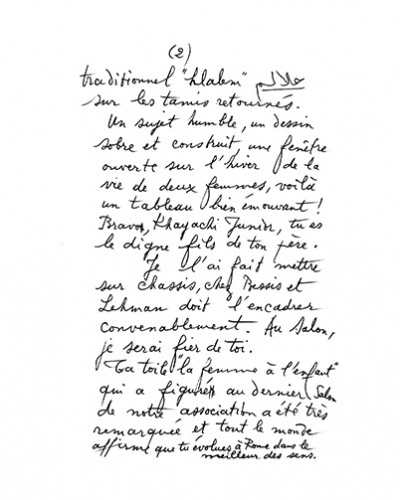 (2)
traditionnel "hlalem" حلالم
sur les tamis retournés.
Un sujet humble, un dessin
sobre et construit, une fenêtre
ouverte sur l'hiver de la
vie de deux femmes, voilà
un tableau bien émouvant !
Bravo, Khayachi Junior, tu es
le digne fils de ton père.
Je l'ai fait mettre
sur chassis, chez Bessis et
Lehman doit l'encadrer
convenablement. Au Salon,
je serai fier de toi.
Ta toile "la femme à l'enfant"
qui a figuré au dernier Salon
de notre association a été très
remarquée et tout le monde
affirme que tu évolues à Rome dans le
meilleur des sens.